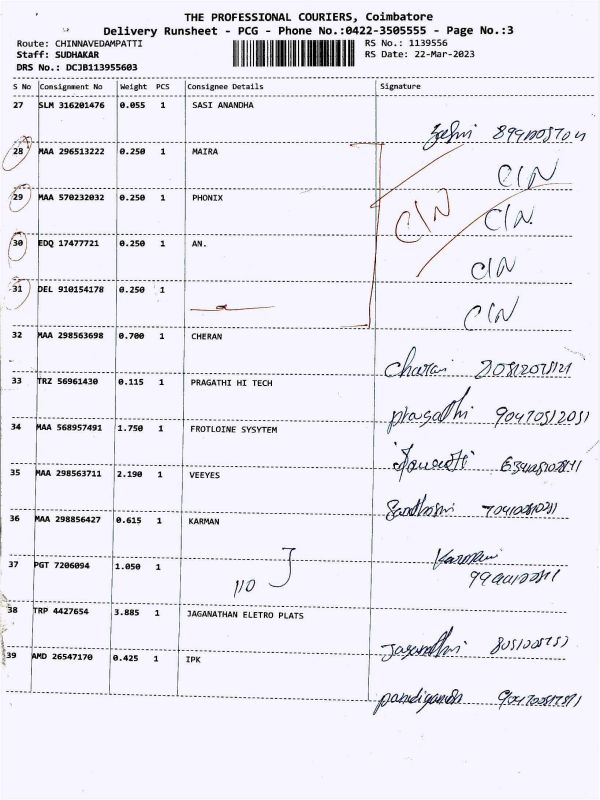 THE PROFESSIONAL COURIERS, Coimbatore
Delivery Runsheet - PCG - Phone No.:0422-3505555 - Page No.:3
Route: CHINNAVEDAMPATTI RS No.: 1139556
Staff: SUDHAKAR RS Date: 22-Mar-2023
DRS No.: DCJB113955603
S No Consignment No Weight PCS Consignee Details Signature
27 SLM 316201476 0.055 1 SASI ANANDHA
28 MAA 296513222 0.250 1 MAIRA
CIN
29 MAA 570232032 0.250 1 PHONIX
CIN CIN
30 EDQ 17477721 0.250 1 AN.
CIN
31 DEL 910154178 0.250 1
CIN
32 MAA 298563698 0.700 1 CHERAN
33 TRZ 56961430 0.115 1 PRAGATHI HI TECH
pragathi 90470512051
34 MAA 568957491 1.750 1 FROTLOINE SYSYTEM
35 MAA 298563711 2.190 1 VEEYES
36 MAA 298856427 0.615 1 KARMAN
37 PGT 7206094 1.050 1
110
38 TRP 4427654 3.885 1 JAGANATHAN ELETRO PLATS
39 AMD 26547170 0.425 1 IPK